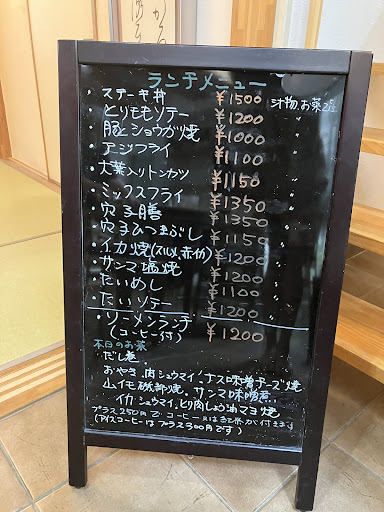 ランチメニュー
・ステーキ丼 ¥1500 汁物、お菜2品
・とりももソテー ¥1200
・豚とショウガ焼 ¥1000
・アジフライ ¥1100
・大葉入りトンカツ ¥1150
・ミックスフライ ¥1350
・穴子膳 ¥1350
・穴子ひつまぶし ¥1150
・イカ焼(スルメ、赤イカ) ¥1200
・サンマ塩焼 ¥1200
・たいめし ¥1100
・たいソテー ¥1200
・ソーメンランチ ¥1200
(コーヒー付)
本日のお菜
だし巻
おやき、肉シュウマイ、ナス味噌チーズ焼
山イモ磯部焼・サンマ味噌煮
イカシュウマイ、とり肉しょう油マヨ焼
プラス250円でコーヒー又は紅茶が付きます
(アイスコーヒーはプラス300円です)